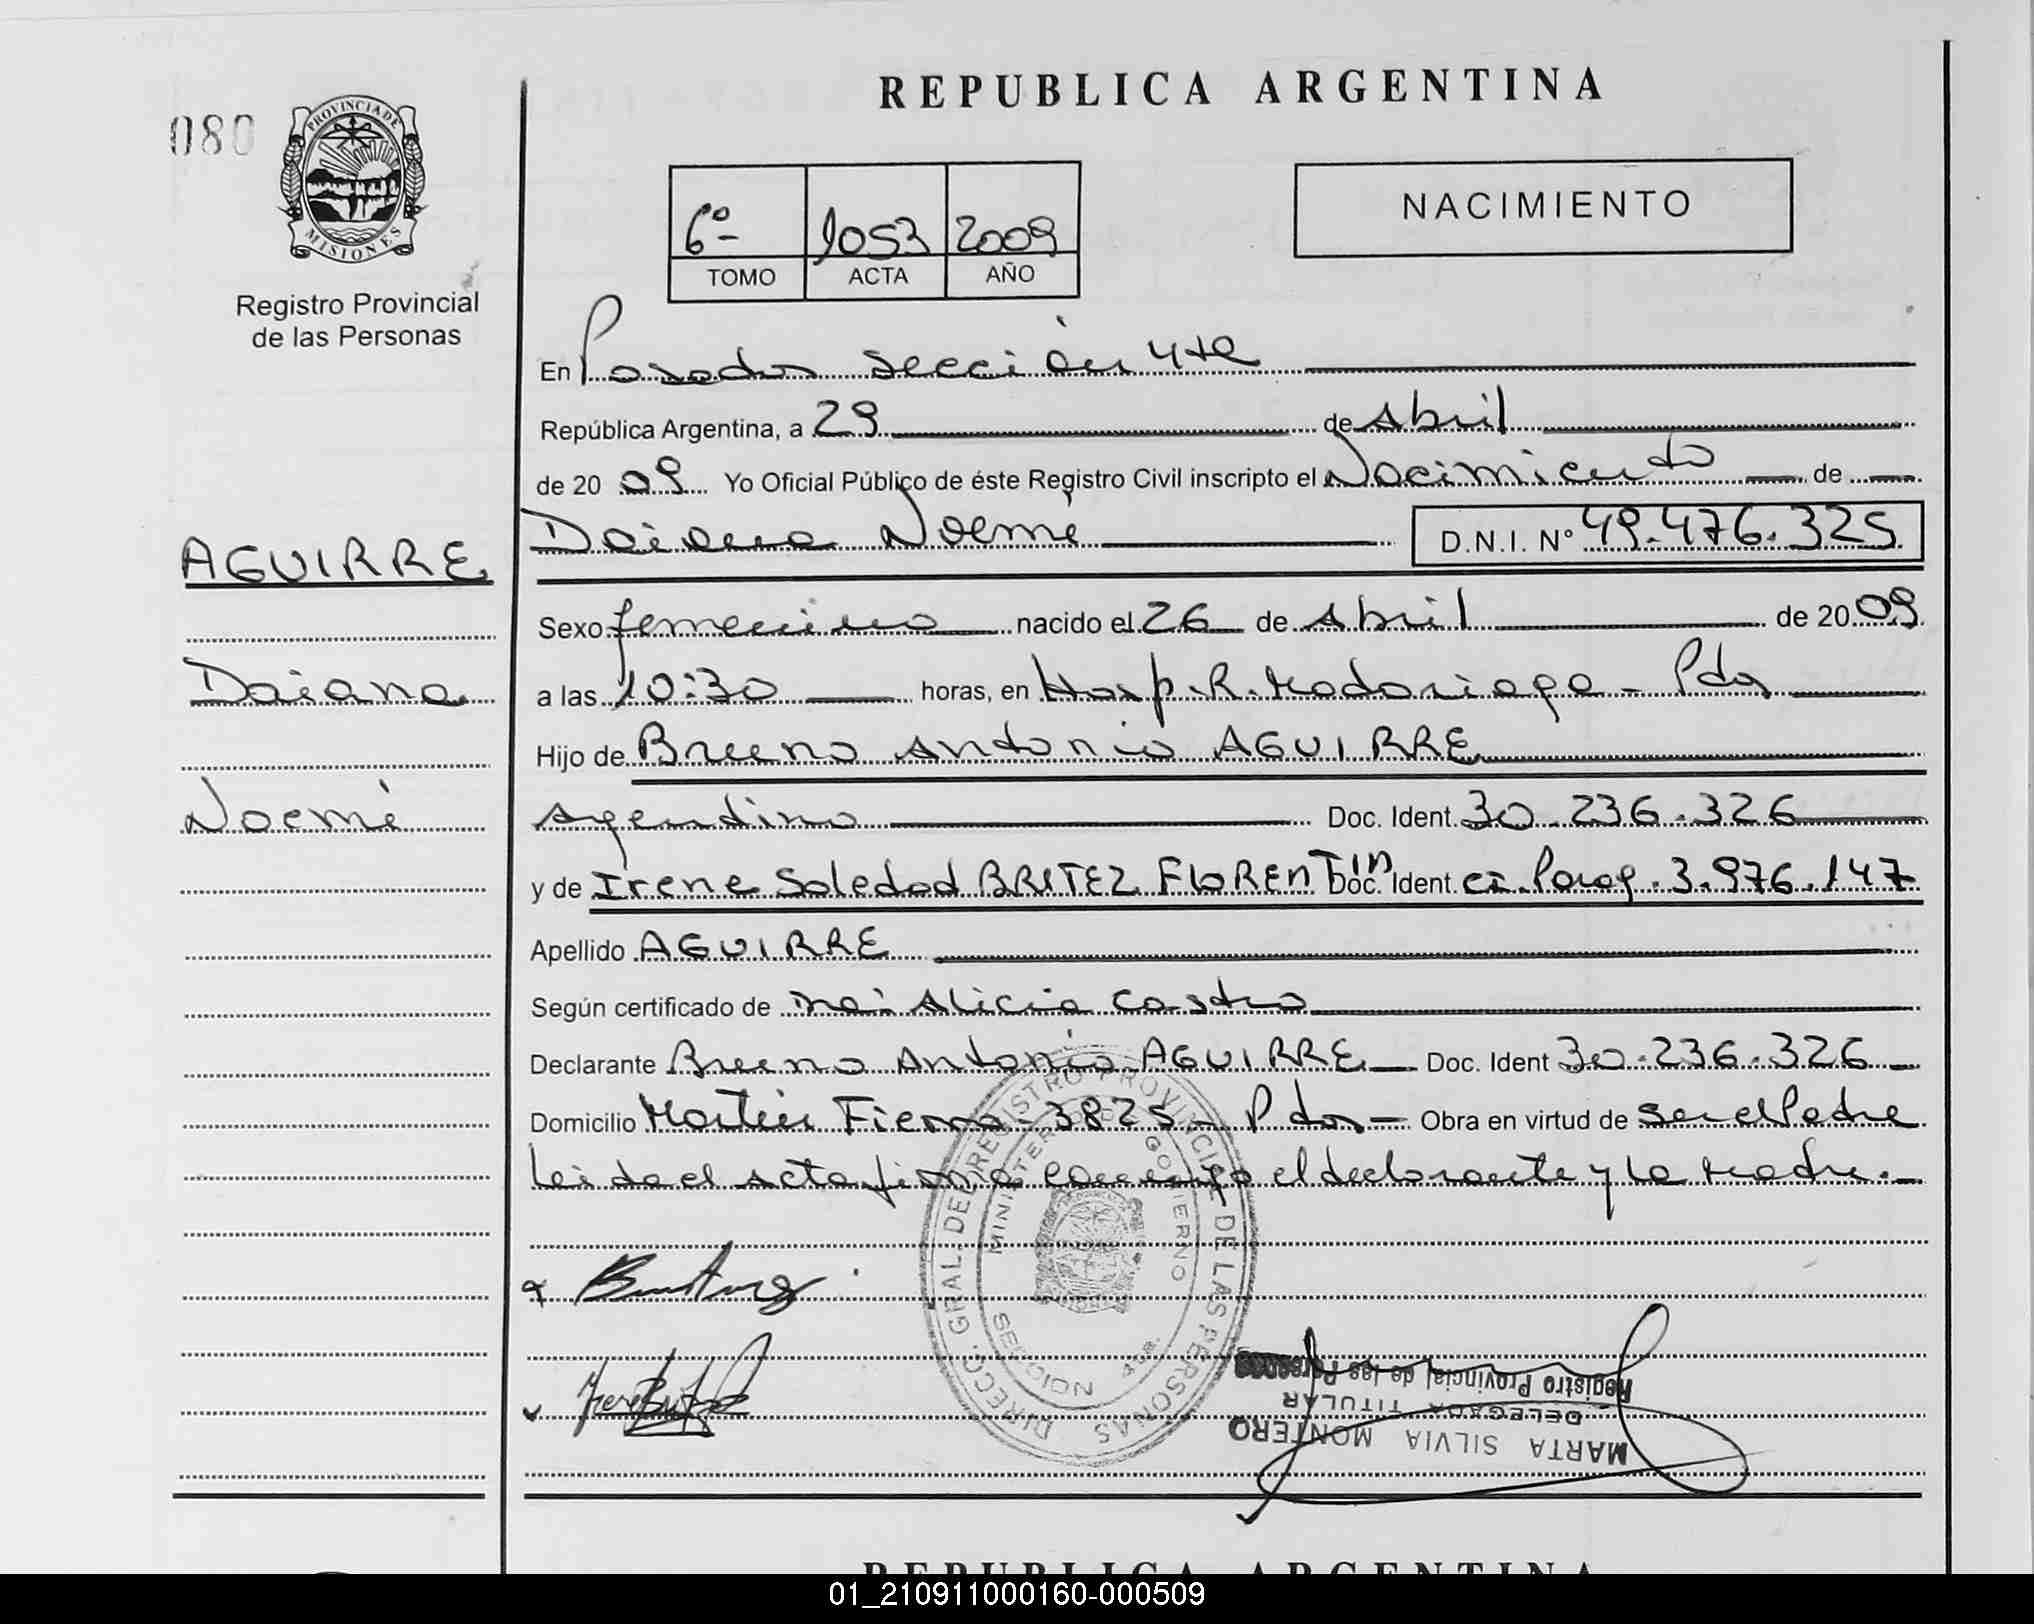 REPUBLICA ARGENTINA
080
PROVINCIA DE
MISIONES
Registro Provincial
de las Personas
NACIMIENTO
6º- 1053 2009
TOMO ACTA AÑO
En Posadas sección 4ta
República Argentina, a 29 de Abril
de 2009 Yo Oficial Público de éste Registro Civil inscripto el Nacimiento de
Daiana Noemí D.N.I. Nº 49.476.325
AGUIRRE
Daiana
Noemí
Sexo femenino nacido el 26 de Abril de 2009
a las 10:30 horas, en Hosp. R. Madariaga - Pdas
Hijo de Bruno Antonio AGUIRRE
Argentino Doc. Ident. 30.236.326
y de Irene Soledad BRITEZ FLORENTIN Doc. Ident. ci. Parag. 3.976.147
Apellido AGUIRRE
Según certificado de Alicia Castro
Declarante Bruno Antonio AGUIRRE Doc. Ident 30.236.326
Domicilio Martín Fierro 3825 - Pdas - Obra en virtud de ser el Padre
Leída el acta firma conmigo el declarante y la Madre.-
DIRECC. GRAL. DEL REGISTRO PROVINCIAL DE LAS PERSONAS
MINISTERIO DE GOBIERNO
SECCION 4ta.
MARTA SILVIA MONTERO
DELEGADA TITULAR
Registro Provincial de las Personas
REPUBLICA ARGENTINA
01_210911000160-000509